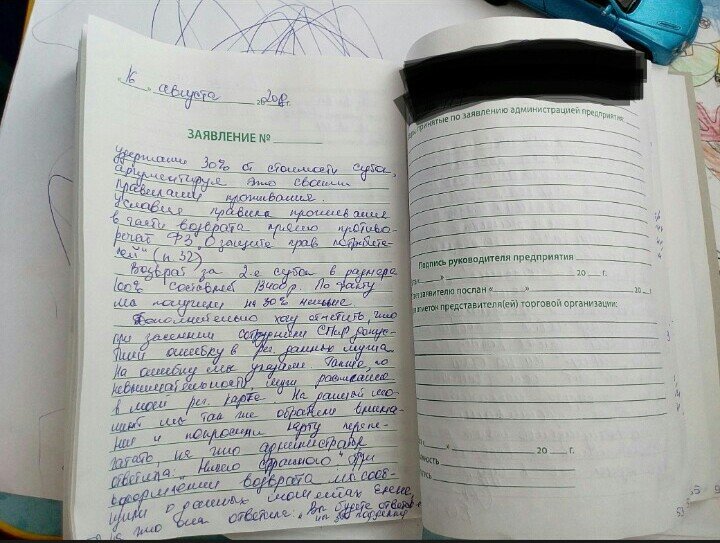 „16“ августа 20 г.
ЗАЯВЛЕНИЕ №
удержание 30% от стоимости суток,
аргументируя это своими
правилами проживания.
Условия правила проживания
в части возврата прямо противо-
речат ФЗ „О защите прав потребите-
лей“ (п. 32)
Возврат за 2-е сутки в размере
100% составлял р. По факту
мы получили на 30% меньше.
Дополнительно хочу отметить, что
при заселении сотрудники СПиР допус-
тили ошибку в рег. данных мужа.
На ошибку мы указали. Также, по
невнимательности, муж расписался
в моей рег. карте. На данный мо-
мент мы так же обратили внима-
ние и попросили карту перепе-
чатать, на что администратор
ответила: „Ничего страшного“. При
оформлении возврата мы сооб-
щили о данных моментах Елене,
на что она ответила: „Вы будете отвечать
за подделку
принятые по заявлению администрацией предприятия:
Подпись руководителя предприятия
20 г.
заявителю послан « » 20 г.
отметок представителя(ей) торговой организации:
20 г.